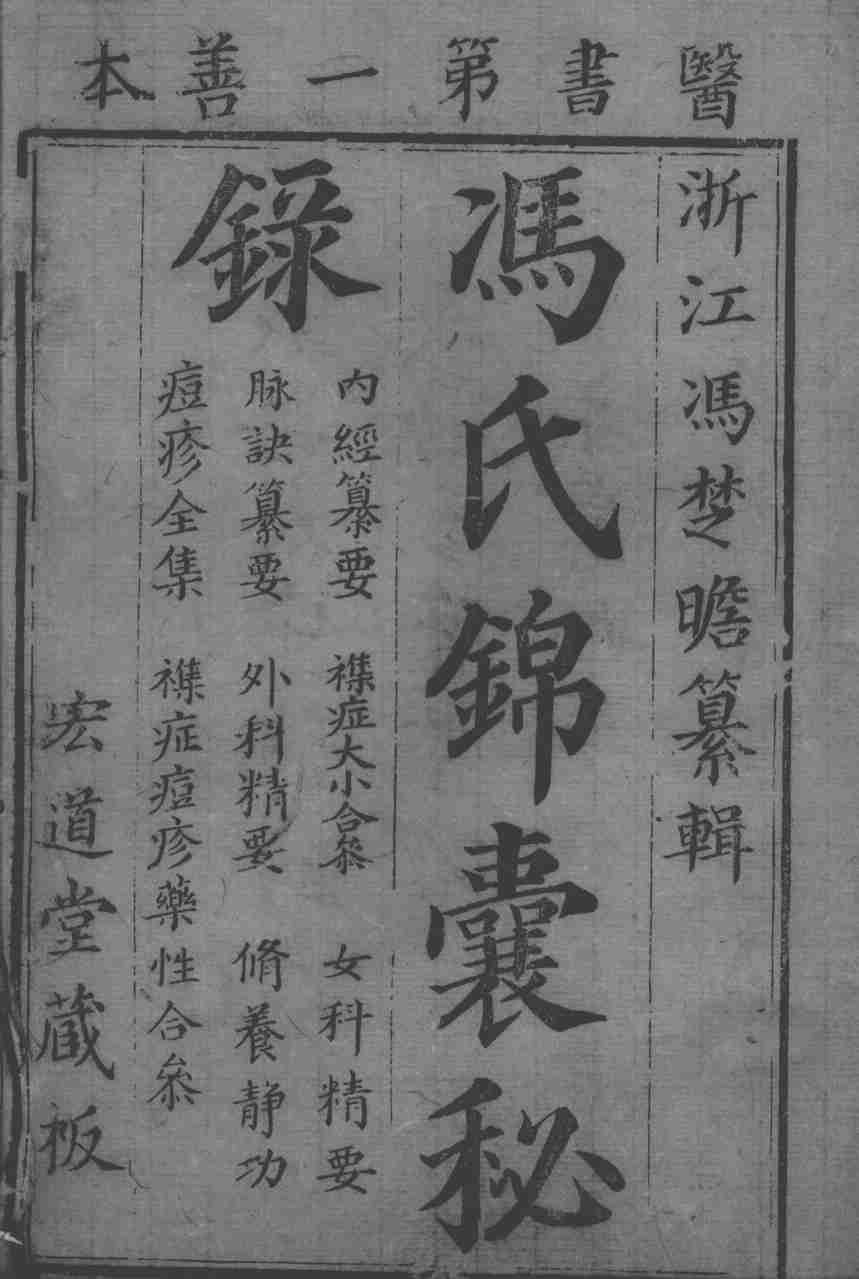 醫書第一善本
浙江馮楚瞻纂輯
馮氏錦囊秘
錄
內經纂要 襍症大小合叅 女科精要
脉訣纂要 外科精要 脩養静功
痘疹全集 襍症痘疹藥性合叅
宏道堂藏板